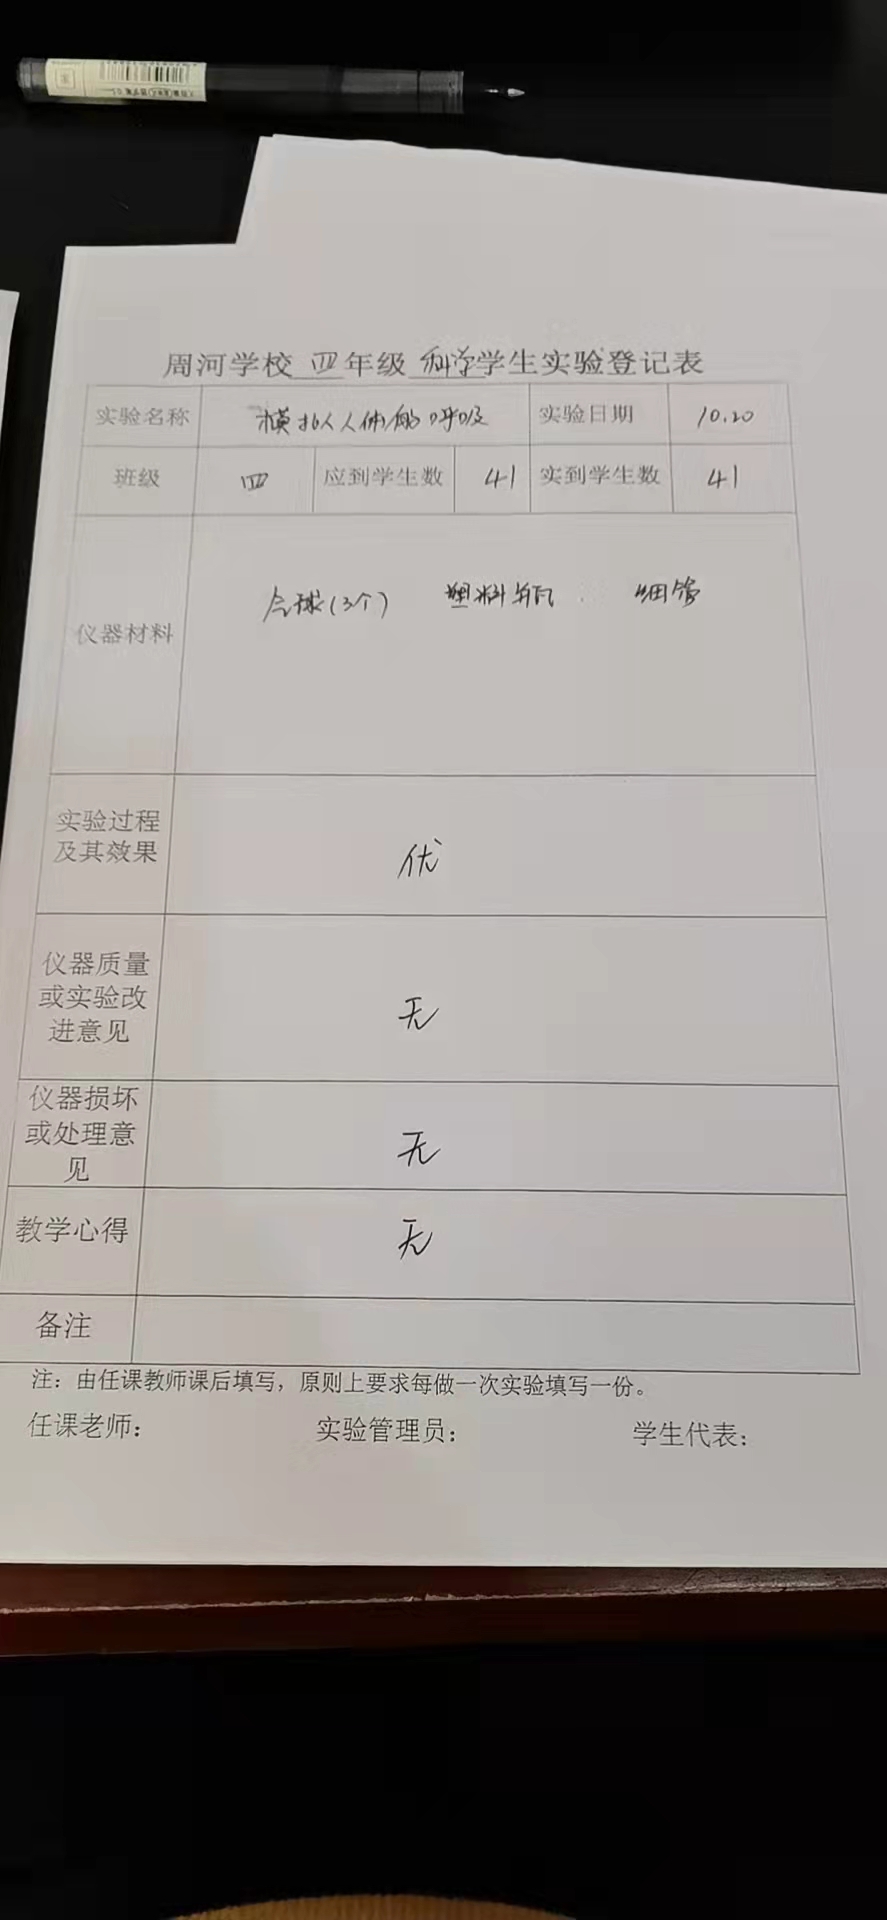 周河学校 四 年级 科学 学生实验登记表
实验名称 模拟人体的呼吸 实验日期 10.20
班级 四 应到学生数 41 实到学生数 41
仪器材料 气球(3个) 塑料瓶 细管
实验过程
及其效果 优
仪器质量
或实验改
进意见 无
仪器损坏
或处理意
见 无
教学心得 无
备注
注：由任课教师课后填写，原则上要求每做一次实验填写一份。
任课老师： 实验管理员： 学生代表：